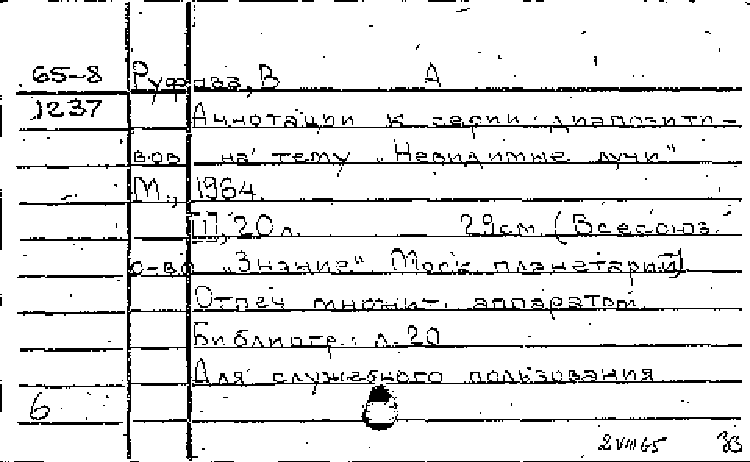 65-8 В А
1237
Аннотации к серии диапозити-
вов на тему „Невидимые лучи"
М., 1964.
III, 20 л. 29 см (Всесоюз.
о-во „Знание". Моск. планетарий)
Отпеч. множит. аппаратом
Библиогр.: л. 20
Для служебного пользования
6
2 VIII 65